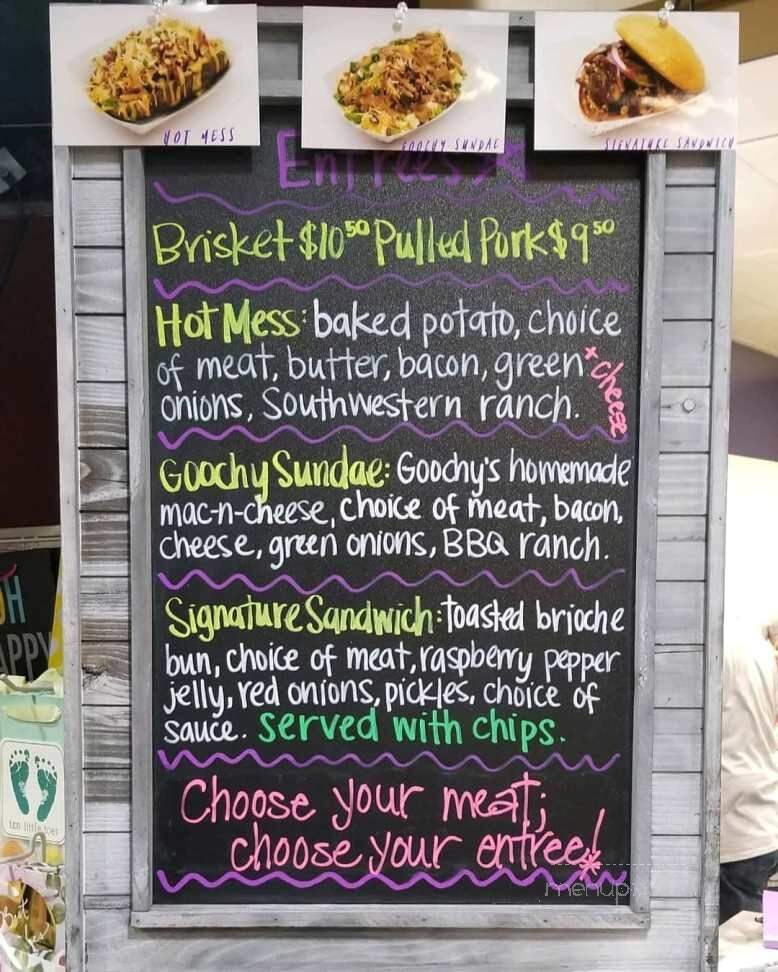 HOT MESS
GOOCHY SUNDAE
SIGNATURE SANDWICH
Entrées
Brisket $10⁵⁰ Pulled Pork $9⁵⁰
Hot Mess: baked potato, choice
of meat, butter, bacon, green
onions, Southwestern ranch.
+ cheese
Goochy Sundae: Goochy's homemade
mac-n-cheese, choice of meat, bacon,
cheese, green onions, BBQ ranch.
Signature Sandwich: toasted brioche
bun, choice of meat, raspberry pepper
jelly, red onions, pickles, choice of
sauce. served with chips.
Choose your meat;
choose your entree!
ten little toes